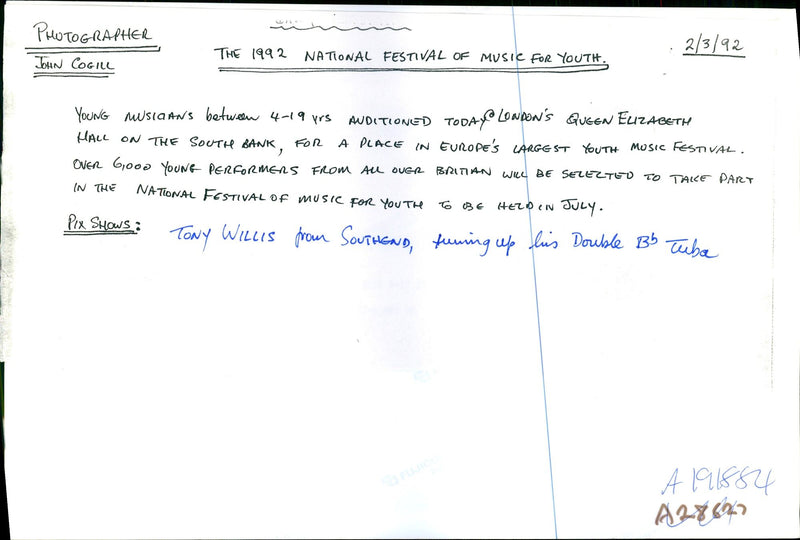 PHOTOGRAPHER
JOHN COGILL
THE 1992 NATIONAL FESTIVAL OF MUSIC FOR YOUTH.
2/3/92
YOUNG MUSICIANS between 4-19 yrs AUDITIONED TODAY @ LONDON'S QUEEN ELIZABETH
HALL ON THE SOUTH BANK, FOR A PLACE IN EUROPE'S LARGEST YOUTH MUSIC FESTIVAL.
OVER 6,000 YOUNG PERFORMERS FROM ALL OVER BRITIAN WILL BE SELECTED TO TAKE PART
IN THE NATIONAL FESTIVAL OF MUSIC FOR YOUTH TO BE HELD IN JULY.
PIX SHOWS: TONY WILLIS from SOUTHEND, tuning up his Double Bb Tuba
FUJI
A191884